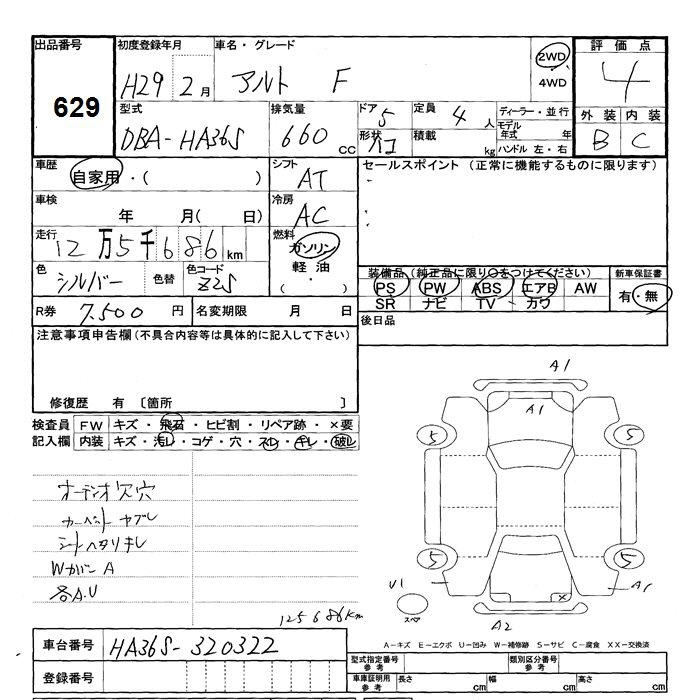 出品番号
629
初度登録年月
H29 2月
車名・グレード
アルト F
2WD
4WD
評価点
4
外装 内装
B C
型式
DBA-HA36S
排気量
660 cc
ドア 5
形状 ハコ
定員 4 人
積載 kg
ディーラー・並行
モデル年式 年
ハンドル 左・右
車歴
自家用・( )
シフト
AT
セールスポイント (正常に機能するものに限ります)
車検
年 月( 日)
冷房
AC
走行
12万5千686km
燃料
ガソリン
軽油
( ・ )
色
シルバー
色替
色コード
Z2S
装備品(純正品に限り○をつけてください)
PS PW ABS エアB AW
SR ナビ TV カワ
新車保証書
有・無
R券 7,500 円
名変期限 月 日
後日品
注意事項申告欄(不具合内容等は具体的に記入して下さい)
修復歴 有 〔箇所 〕
検査員記入欄
FW キズ・飛石・ヒビ割・リペア跡・×要
内装 キズ・汚レ・コゲ・穴・スレ・キレ・破レ
オーディオ欠穴
カーペット ヤブレ
シートヘタリキレ
WカバーA
各A.U
125686km
A1
A1
5 5
5 5
A1
U1
スペア
×
A2
A-キズ E-エクボ U-凹み W-補修跡 S-サビ C-腐食 XX-交換済
車台番号 HA36S-320322
登録番号
型式指定番号 参考
類別区分番号 参考
車庫証明用 参考
長さ cm 幅 cm 高さ cm